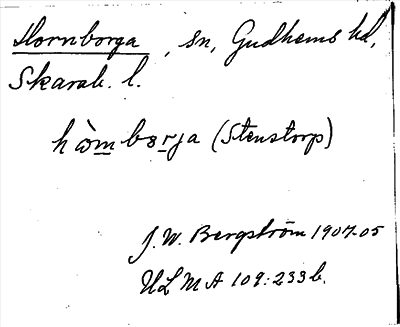 Hornborga, sn, Gudhems hd,
Skarab. l.
hòm borja (Stenstorp)
J. W. Bergström 1907-05
ULMA 109:233 b.